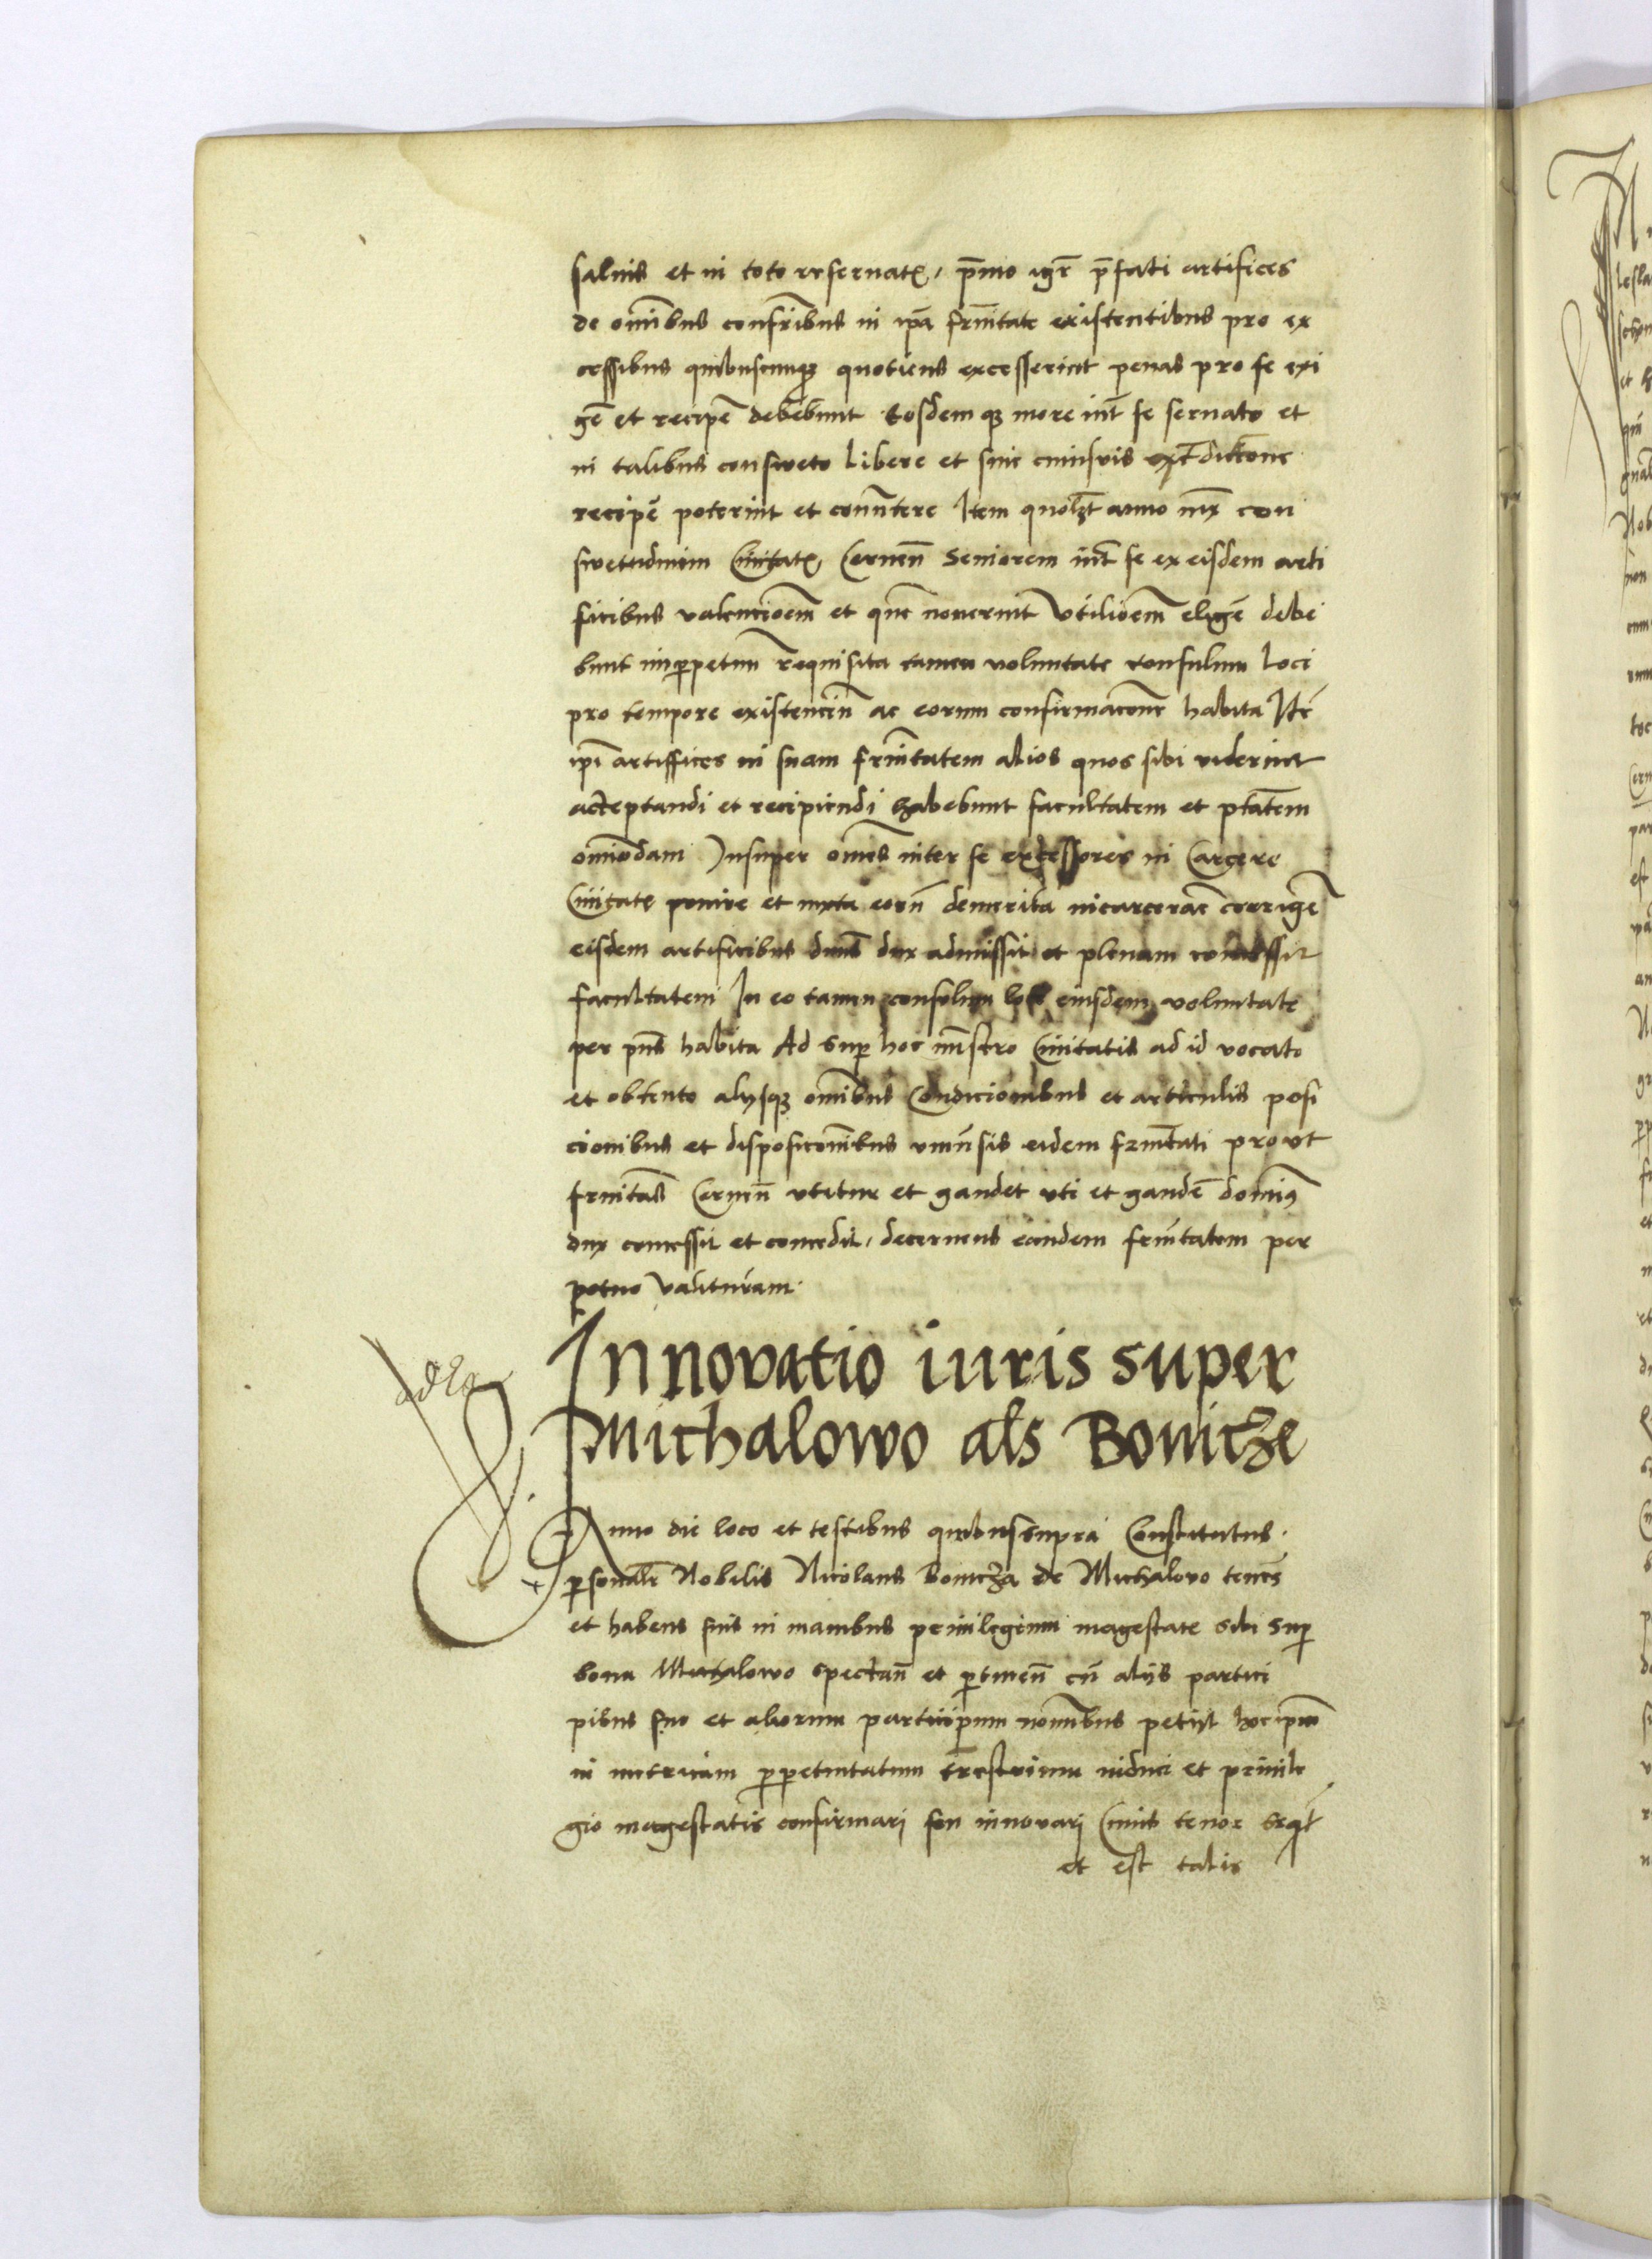 salvis et in toto reservatꝭ, p̄mo igr̄ p̄fati artifices
de om̄ibus confr̄ibus in ip̄a fr̄nitate existentibus pro ex
cessibus quibuscunqꝫ quotiens excesserint penas pro se exi
gē et recipē debebunt Eosdem qꝫ more int̄ se servato et
in talibus consweto libere et sine cuiusvis
recipē poterint et comittere Item quolꝫt anno iux̄ con
swetudinem Civitatꝭ Cernen̄ Seniorem int̄ se ex eisdem arti
ficibus valencioem̄ et que noverint Utilioem̄ eligē debe
bunt inꝑpetuu̅ requisita tamen voluntate consulum loci
pro tempore existenciu̅ ac eorum confirmacione habita Itē
ip̄i artiffices in suam fr̄nitatem alios quos sibi viderint
acceptandi et recipiendi habebunt facultatem et ptātem
omīodam Insuper omēs inter se excessores in Carcere
Civitatꝭ ponire et iuxta eoru̅ demerita incarcerāe corrigē
eisdem artificibus dn̄s dux admissit et plenam concessit
facultatem In eo tamen consulum loci eiusdem voluntate
per pn̄s habita Ad Suꝑ hoc mīstro Civitatis ad id vocato
et obtento alysqꝫ om̄ibus Condicionibus et articulis posi
cionibus et disposicionībus univ̄sis eidem fr̄nitati pro ut
fr̄nitas Cernen̄ utitur et gaudet uti et gaudē domin9
dux concessit et concedit, decernens eandem fr̄nitatem per
petuo valituram.
ad La
Innovatio iuris super
Michalowo als Bonicze
Anno die loco et testibus quibus supra Constitutus.
ꝑsonalr̄ Nobilis Nicolaus Bonicza de Michalovo tenen̄s
et habens suis in manibus privilegium magestate sibi Suꝑ
bona Michalowo spectan̄ et ꝑtinen̄ cu̅ alys partici
pibus suo et aliorum participum nomi̅bus petiyt hoc ipm̄
in metricam ꝑpetuitatum terrestrium induci et privile
gio magestatis confirmari seu innovari Cuius tenor seqt̄
et est talis